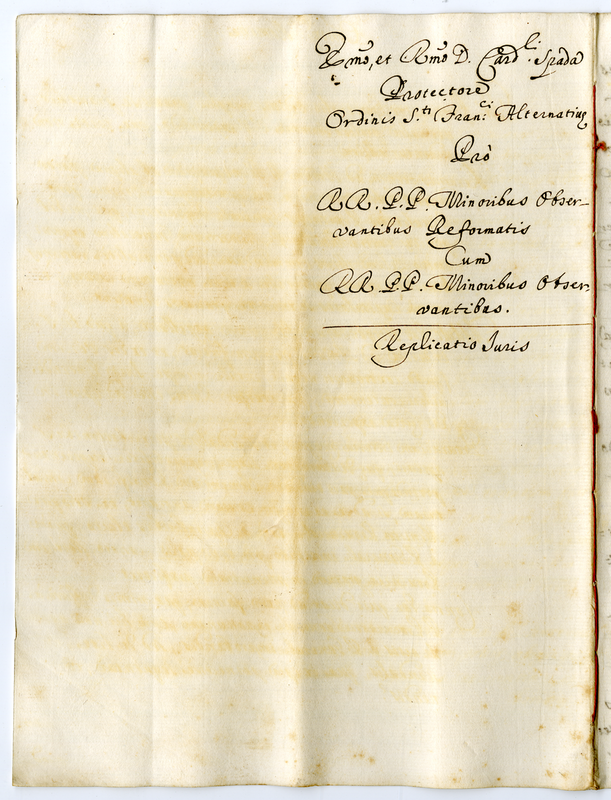 Emo, et Rmo D. Card.li Spada
Protectore
Ordinis S.ti Fran:ci Alternatius
Pro
RR. P.P. Minoribus Obser-
vantibus Reformatis
Cum
RR. PP. Minoribus Obser-
vantibus.
Replicatio Iuris